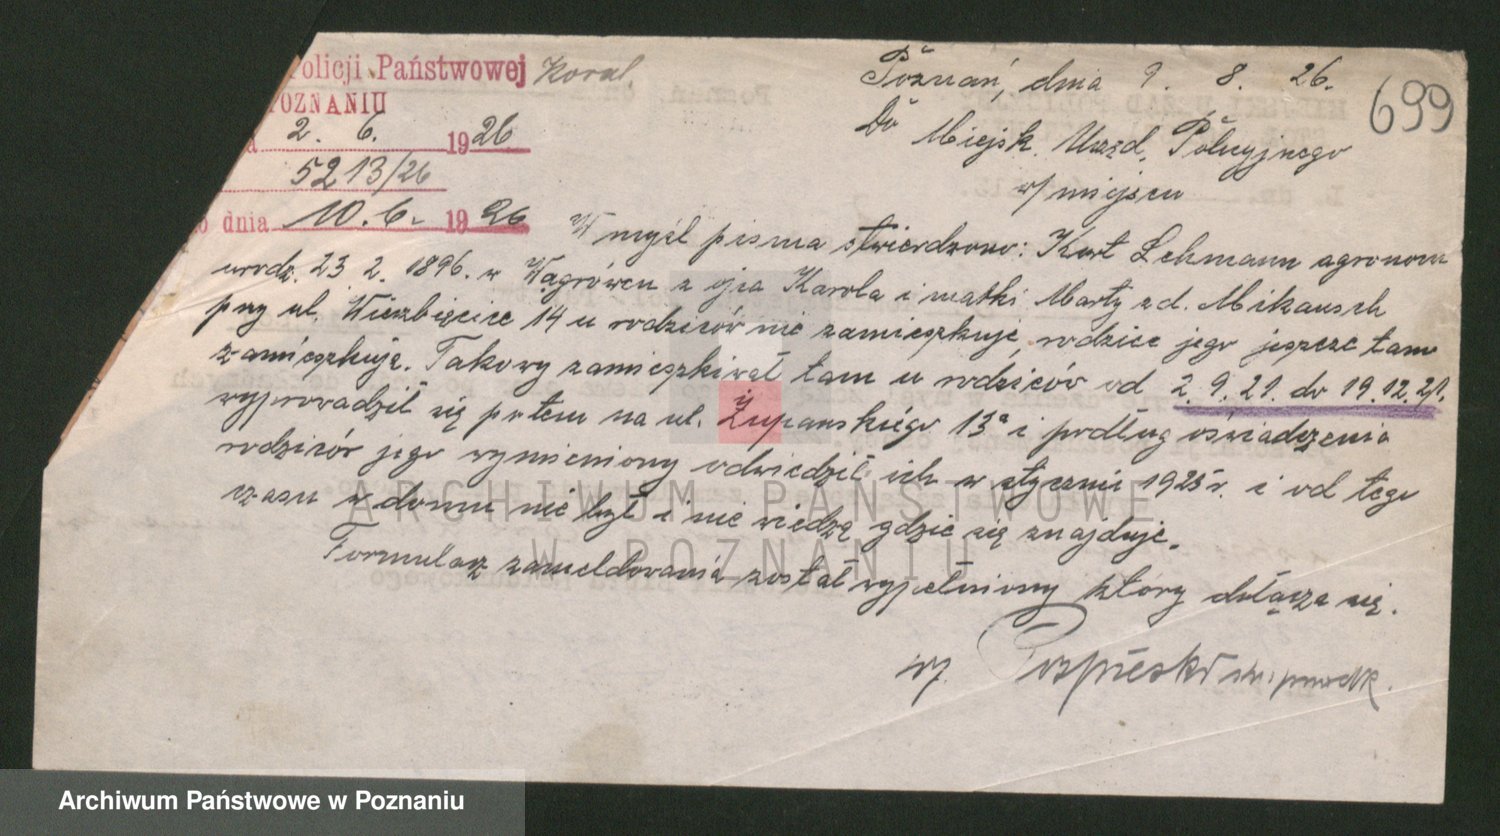 Policji Państwowej Koral
POZNANIU
2. 6. 1926
5213/26
do dnia 10.6. 1926
Poznań, dnia 9. 8. 26.
699
Do Miejsk. Urzęd. Policyjnego
w/miejscu
W myśl pisma stwierdzono: Kurt Lehmann agronom
urodz. 23 2. 1896. w Wągrówcu z ojca Karola i matki Marty zd. Mikausch
przy ul. Wierzbięcice 14 u rodziców nie zamieszkuje, rodzice jego jeszcze tam
zamieszkują. Takowy zamieszkiwał tam u rodziców od 2.9.21. do 19.12.21.
wyprowadził się potem na ul. Żupańskiego 13a i podług oświadczenia
rodziców jego wymieniony odwiedził ich w styczniu 1925 r. i od tego
czasu w domu nie był i nie wiedzą gdzie się znajduje.
Formularz zameldowania został wypełniony który dołącza się.
ARCHIWUM PAŃSTWOWE
W POZNANIU
Archiwum Państwowe w Poznaniu